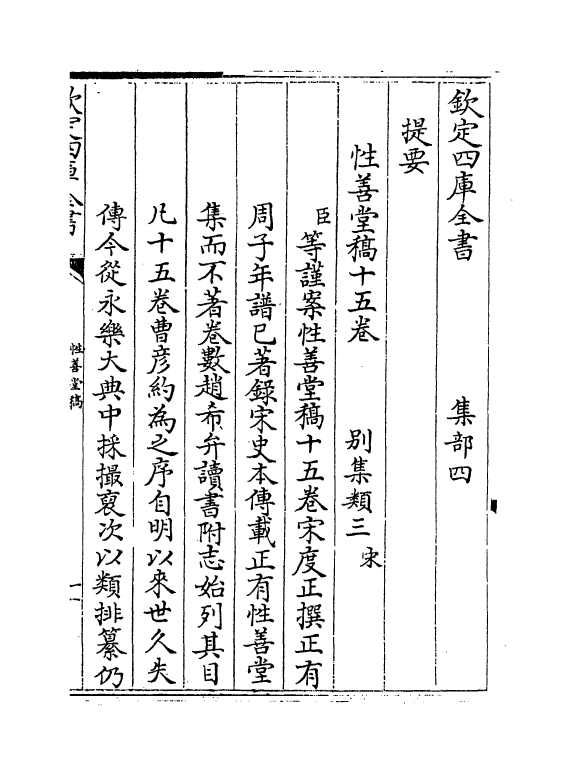 欽定四庫全書　集部四
提要
性善堂稿十五卷　别集類三宋
臣等謹案性善堂稿十五卷宋度正撰正有
周子年譜已著錄宋史本傳載正有性善堂
集而不著卷數趙希弁讀書附志始列其目
凡十五卷曹彦約為之序自明以來世久失
傳今從永樂大典中採撮裒次以類排纂仍
欽定四庫全書
性善堂稿
一